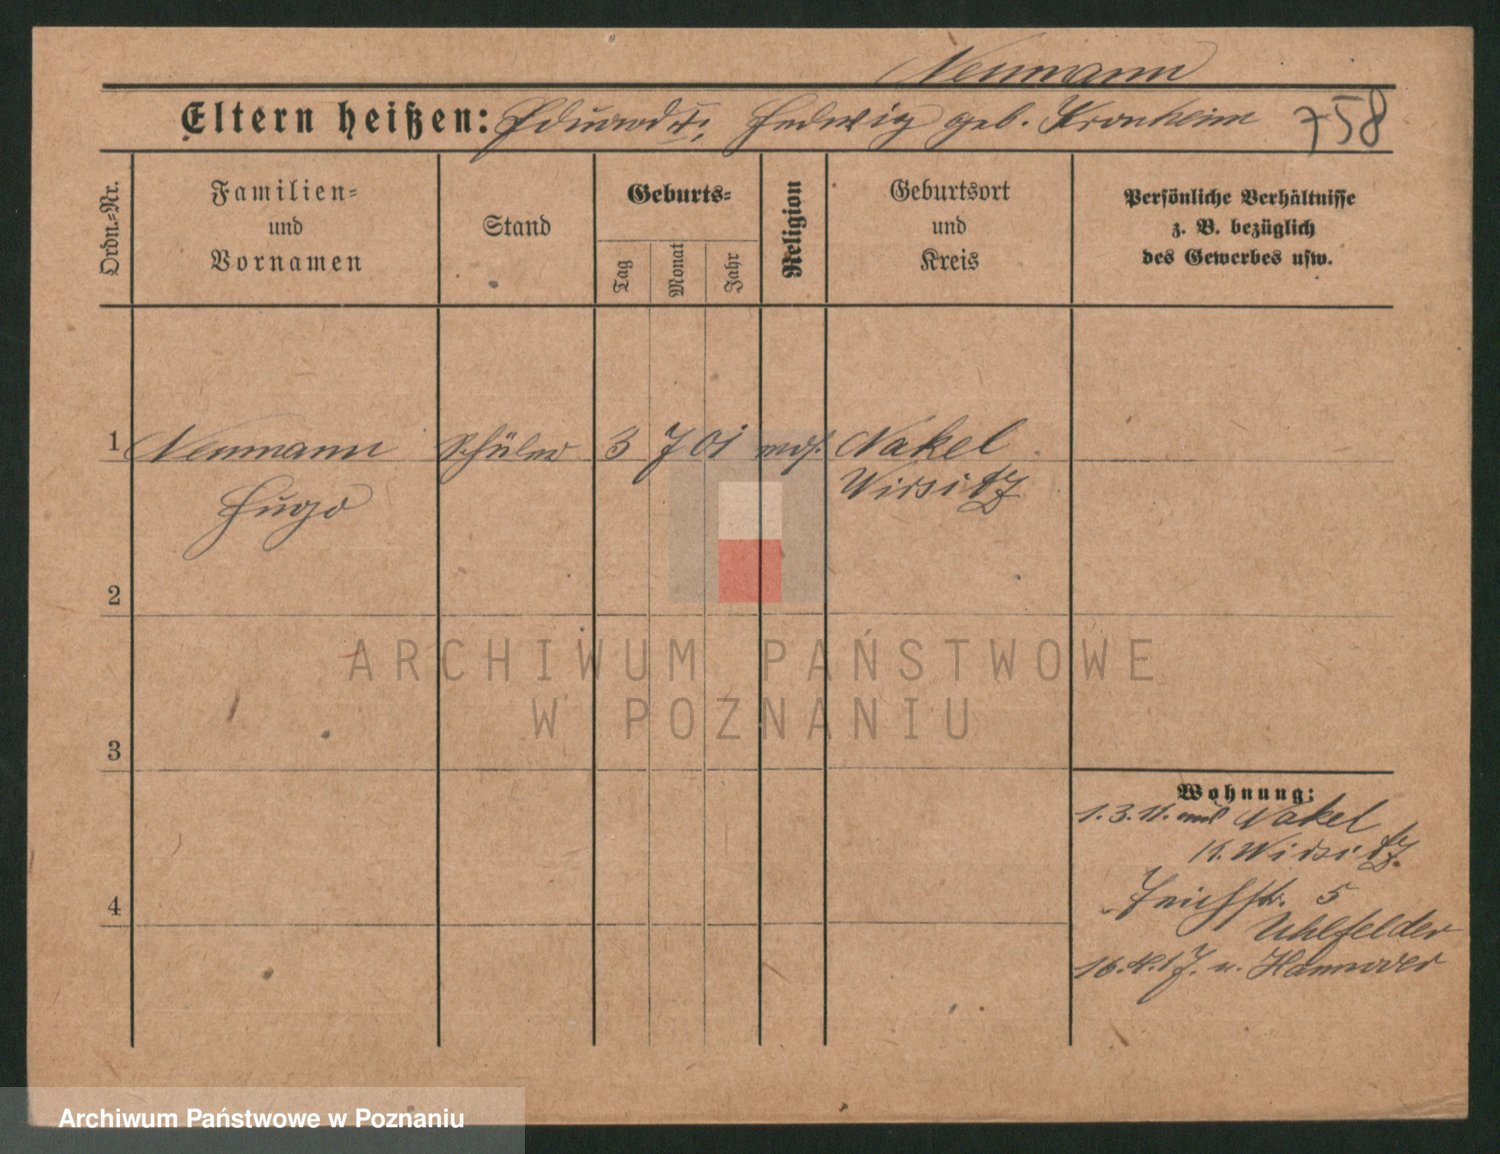 Neumann
Eltern heißen: Eduard u. Hedwig geb. Kronheim 758
Ordn.=Nr.
Familien=
und
Vornamen
Stand
Geburts=
Tag
Monat
Jahr
Religion
Geburtsort
und
Kreis
Persönliche Verhältnisse
z. B. bezüglich
des Gewerbes usw.
1 Neumann Schüler 3 7 01 mos. Nakel
Hugo Wirsitz
2
3
4
Wohnung:
1. 3. 11. Nakel
K. Wirsitz
5
Uhlfelder
16. 4. 17. n. Hannover
ARCHIWUM PAŃSTWOWE
W POZNANIU
Archiwum Państwowe w Poznaniu